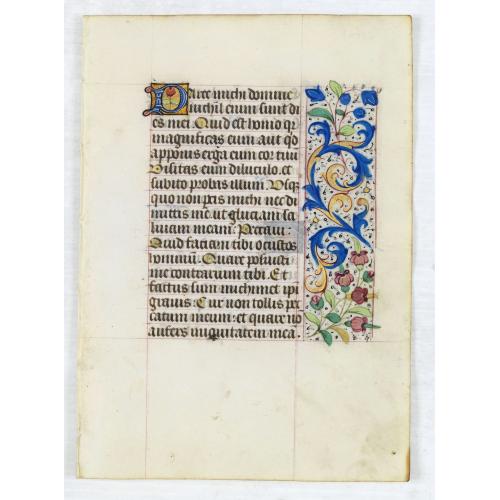 Parce michi domine
nichil enim sunt di
es mei. Quid est homo qr
magnificas eum aut qd
apponis erga eum cor tuu
Visitas eum diluculo. et
subito probas illum Usq
quo non pcis michi nec di
mittis me ut gluciam sa
liuam meam: Peccaui:
Quid faciam tibi o custos
hominum. Quare posuisti
me contrarium tibi. Et
factus sum michimet ipi
grauis: Cur non tollis pec
catum meum: et quare no
aufers iniquitatem mea.